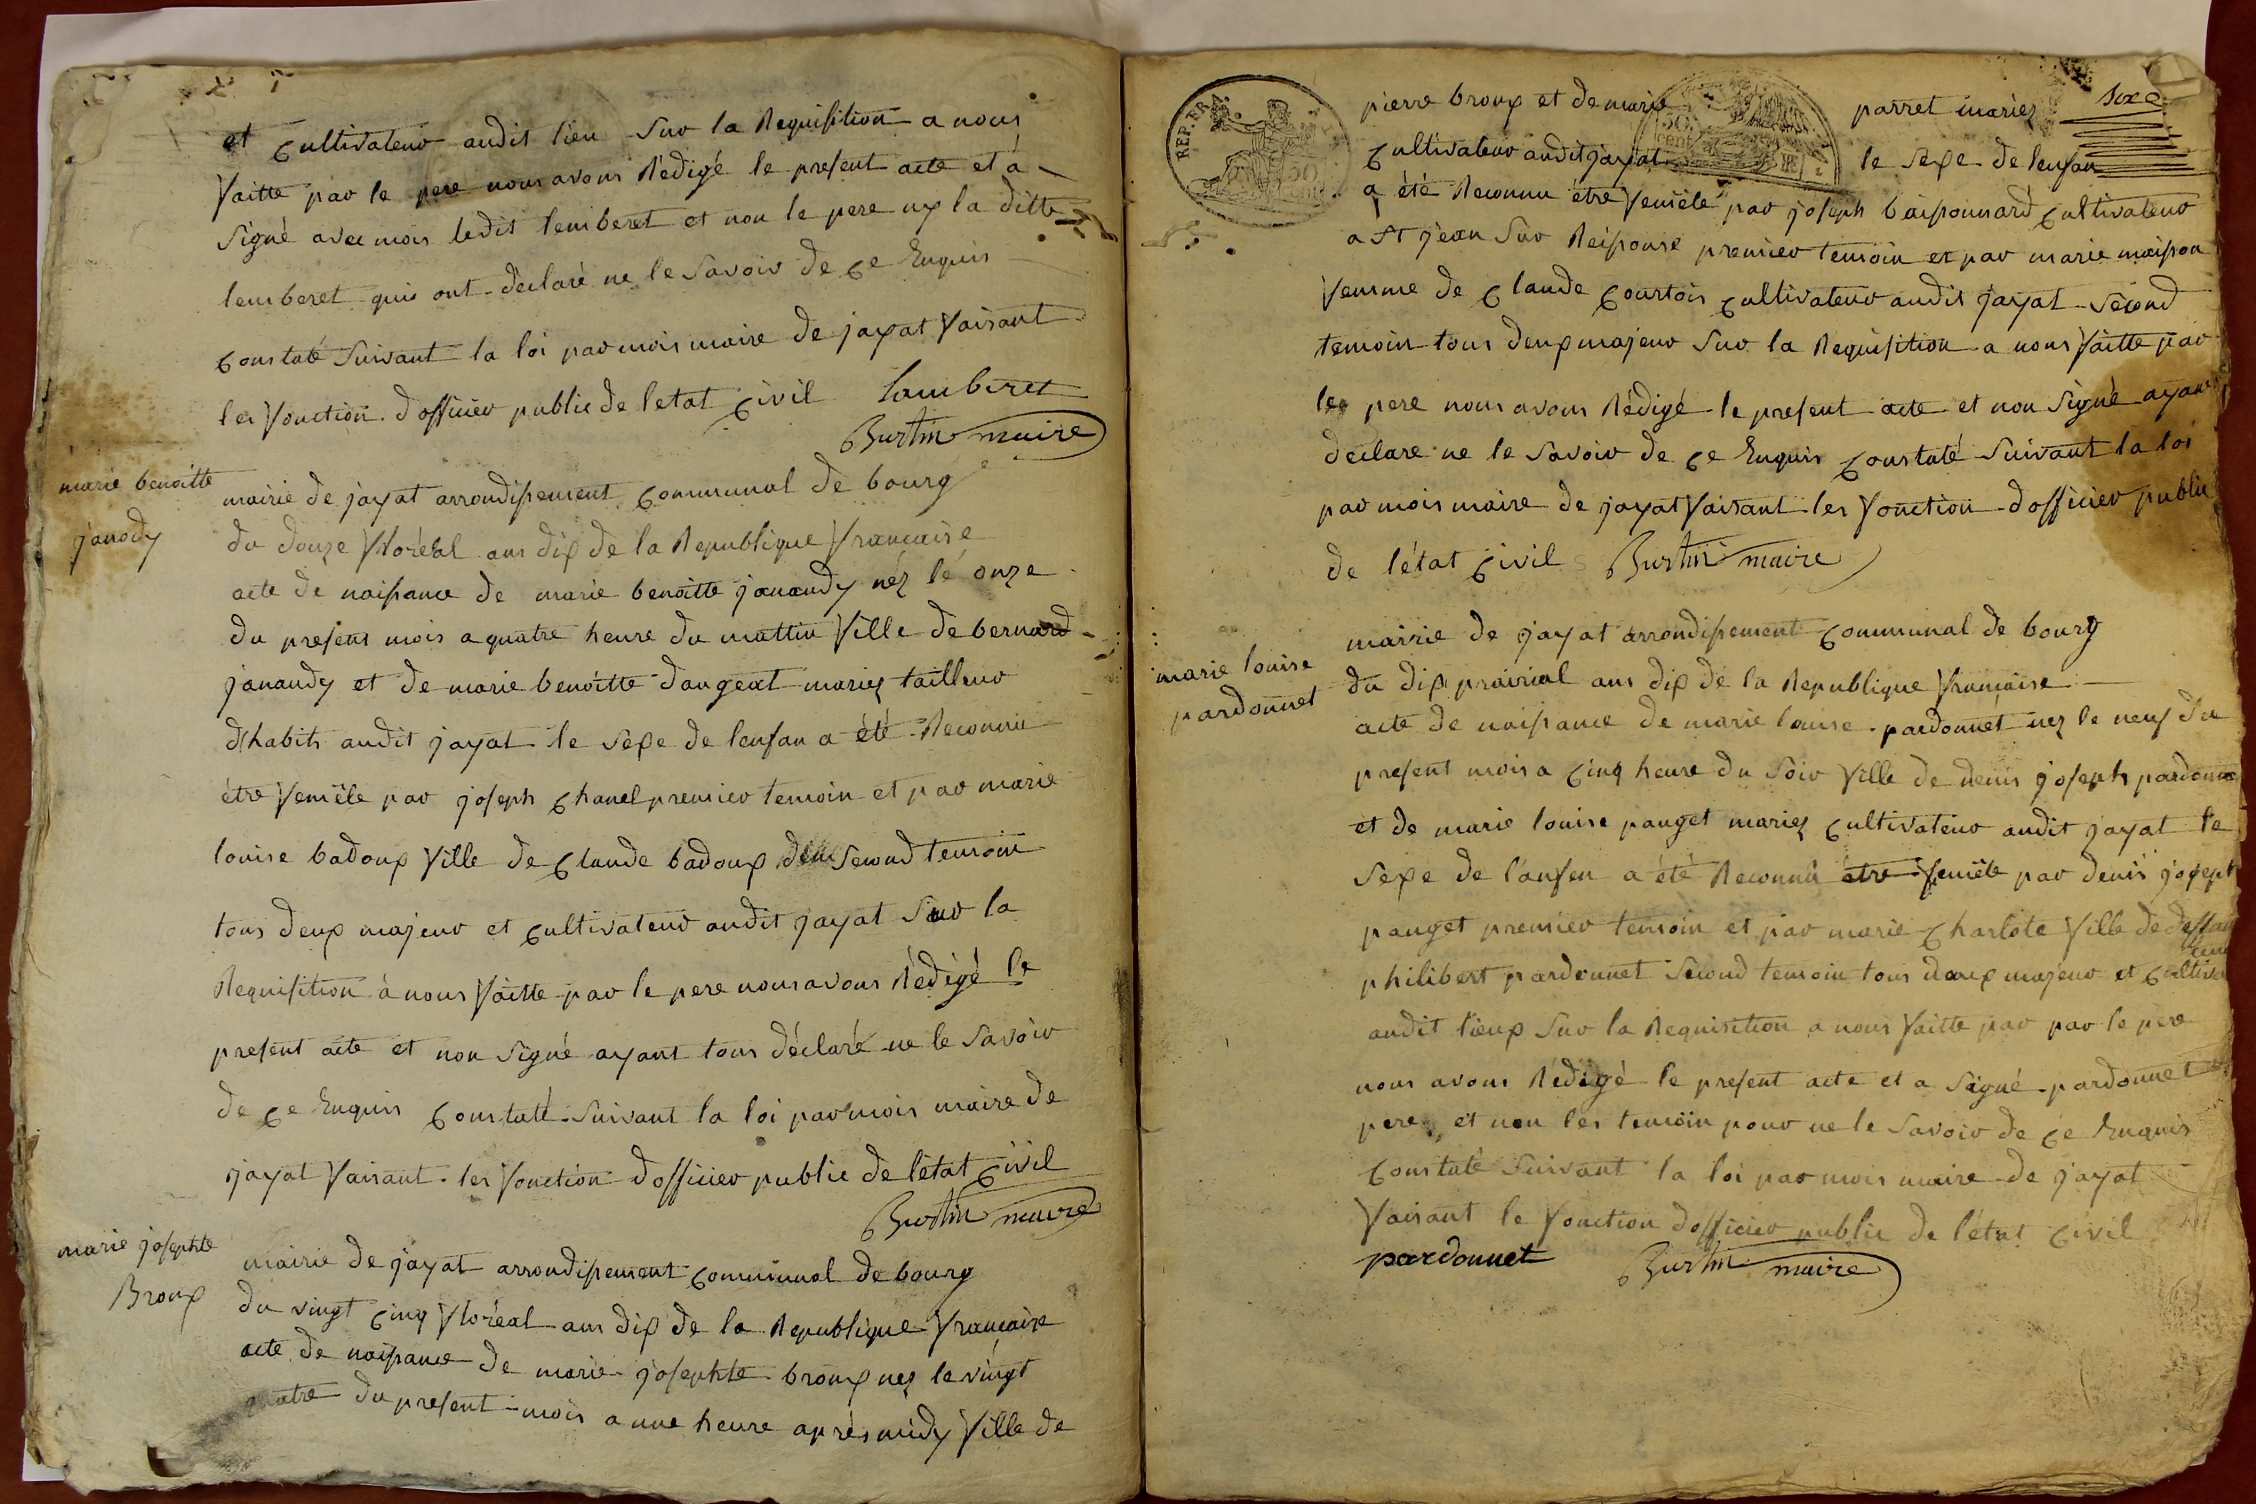 et cultivateur audit lieu sur la Requisition a nous
faitte par le pere nous avons Rédigé le present acte et à
signé avec mois ledit lemberet et non le pere ny la ditte
lemberet quis ont déclaré ne le savoir de ce Enquis
constaté suivant la loi par mois maire de jayat faisant
les fonction d'officier public de letat civil Lamberet
Burtin maire
marie benoitte
janody
mairie de jayat arrondissement communal de bourg
du douze floréal ans dix de la Republique francaise
acte de naissance de marie benoitte janaudy néz lé onze
du present mois a quatre heure du mattin fille de bernard
janaudy et de marie benoitte dangeat mariez tailleur
d'habits audit jayat le sexe de lenfan a été Reconnu
étre femèle par joseph chanel premier temoin et par marie
louise badoux fille de claude badoux second temoin
tous deux majeur et cultivateur audit jayat sur la
Requisition à nous faitte par le pere nous avons Rédigé le
present acte et non signé ayant tous déclaré ne le savoir
de ce Enquis constaté suivant la loi par mois maire de
jayat faisant les fonction dofficier public de létat civil
Burtin maire
marie josephte
Broux
mairie de jayat arrondissement communal de bourg
du vingt cinq floréal ans dix de la Republique francaise
acte de naissance de marie josephte broux nez le vingt
quatre du present mois a une heure après midy fille de
REP. FRA.
pierre broux et de marie parret mariez
cultivateur audit jayat le sexe de lenfan
a été Reconnu étre femèle par joseph baissonnard cultivateur
a St jean sur Reissouse premier temoin et par marie maisson
femme de claude courtois cultivateur audit jayat second
temoin tous deux majeur sur la Requisition a nous faitte par
le pere nous avons Rédigé le present acte et non signé ayant
déclare ne le savoir de ce Enquis constaté suivant la loi
par mois maire de jayat faisant les fonction dofficier public
de létat civil Burtin maire
marie louise
pardonnet
mairie de jayat arrondissement communal de bourg
du dix prairial ans dix de la Republique francaise
acte de naissance de marie louise pardonnet nez le neuf du
present mois a cinq heure du soir fille de denis joseph pardonne
et de marie louise panget mariez cultivateur audit jayat le
sexe de lanfen a été Reconnu étre femèle par denis joseph
panget premier temoin et par marie charlote fille de deffan
philibert pardonnet second temoin tous deux majeur et cultiva
audit lieux sur la Requisition a nous faitte par par le père
nous avons Rédigé le present acte et a signé pardonnet
pere et non les temoin pour ne le savoir de ce Enquis
constaté suivant la loi par mois maire de jayat
faisant le fonction dofficier public de létat civil
pardonnet Burtin maire